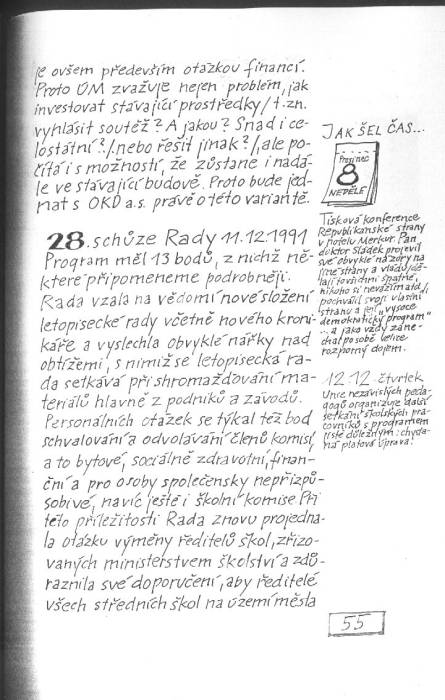 je ovšem především otázkou financí.
Proto ÚM zvažuje nejen problém, jak
investovat stávající prostředky /t.zn.
vyhlásit soutěž? A jakou? Snad i ce-
lostátní?/nebo řešit jinak?/, ale po-
čítá i s možností, že zůstane i nadá-
le ve stávající budově. Proto bude jed-
nat s OKD a.s. právě o této variantě.
28. schůze Rady 11.12.1991
Program měl 13 bodů, z nichž ně-
které připomeneme podrobněji.
Rada vzala na vědomí nové složení
letopisecké rady včetně nového kroni-
káře a vyslechla obvyklé nářky nad
obtížemi, s nimiž se letopisecká ra-
da setkává při shromažďování ma-
teriálů hlavně z podniků a závodů.
Personálních otázek se týkal též bod
schvalování a odvolávání členů komisí,
a to bytové, sociálně zdravotní, finan-
ční a pro osoby společensky nepřizpů-
sobivé, navíc ještě i školní komise. Při
této příležitosti Rada znovu projedna-
la otázku výměny ředitelů škol, zřizo-
vaných ministerstvem školství a zdů-
raznila své doporučení, aby ředitelé
všech středních škol na území města
JAK ŠEL ČAS...
Prosinec
8
NEDĚLE
Tisková konference
Republikánské strany
v hotelu Merkur. Pan
doktor Sládek projevil
své obvyklé názory na
jiné strany a vládu/dě-
lají to všichni špatně,
nikoho si neváží atd./,
pochválil svoji vlastní
stranu a její "vysoce
demokratický program"
...a jako vždy záne-
chal po sobě velice
rozporný dojem.
12.12. čtvrtek
Unie nezávislých peda-
gogů organizuje další
setkání školských pra-
covníků s programem
jistě důležitým: chysta-
ná platová úprava!
55